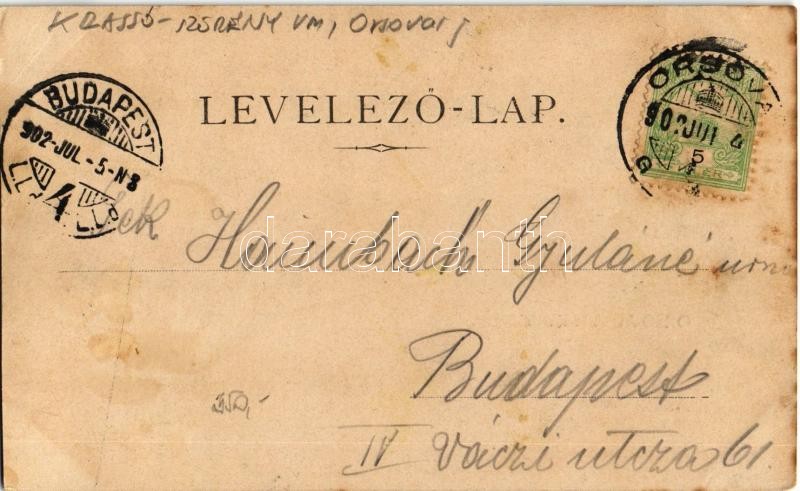 KRASSÓ-SZÖRÉNY VM, Orsova
BUDAPEST
902-JUL.-5-N8
4
ORSOVA
902 JUL 4
5
LEVELEZŐ-LAP.
Haimbach Gyuláné
darabanth
Budapest
350,-
IV Váczi utcza 61.